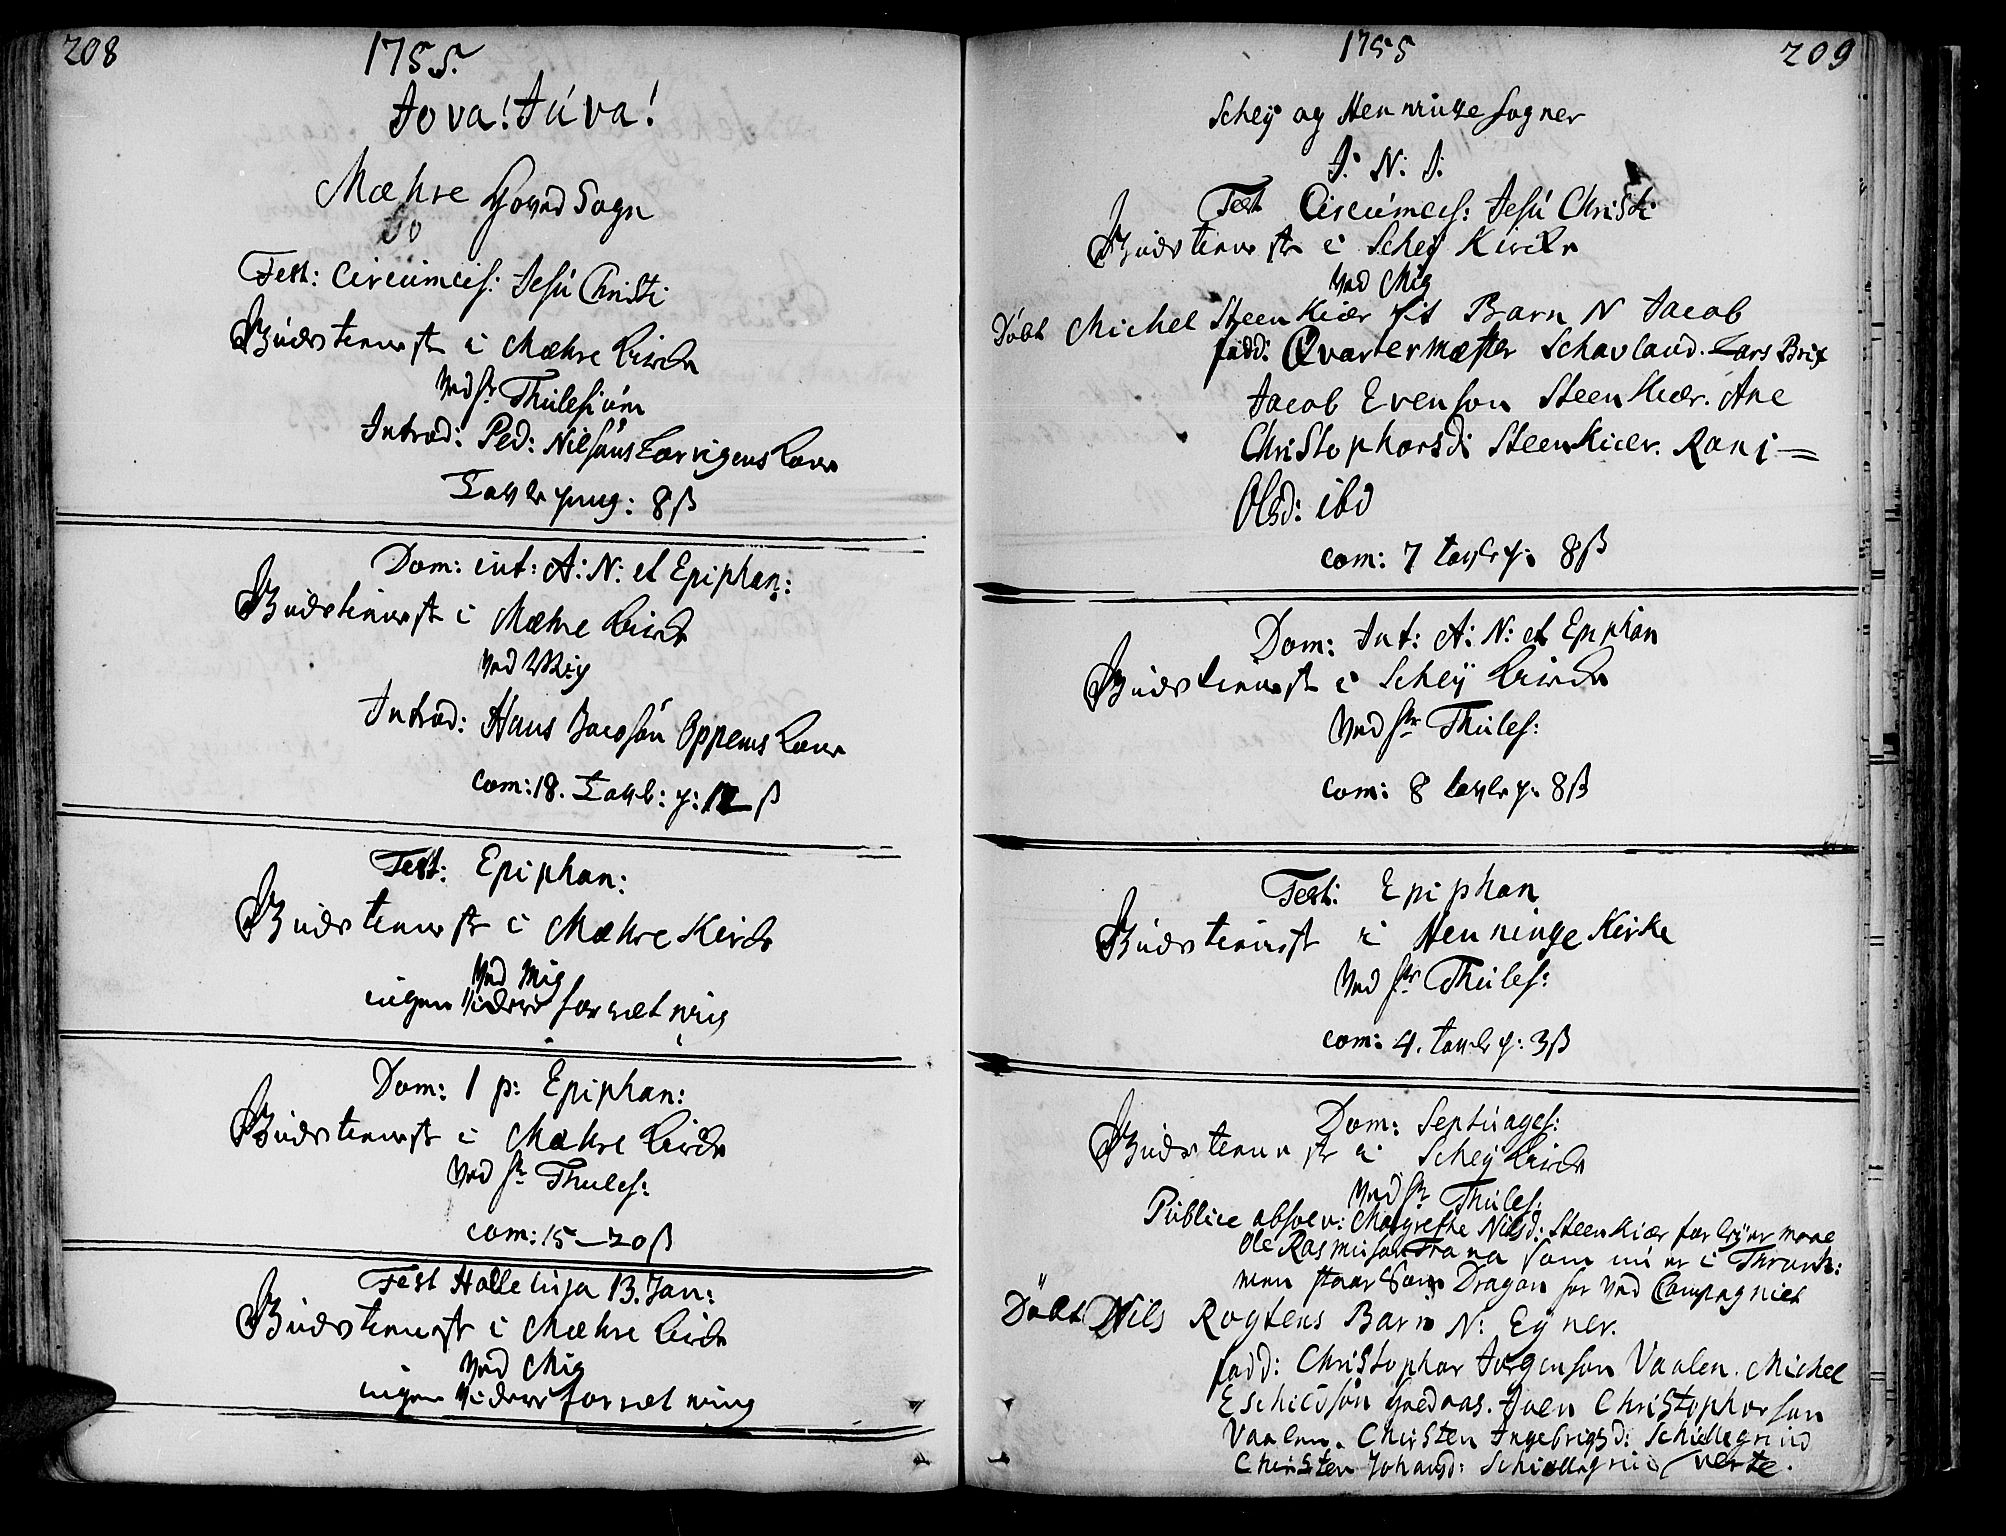 208
1755.
Jova! Júva!
Mæhre Hoved Sogn
Fest: Circúmcis: Jesú Christi
Gúds tieneste i Mæhre Kirche
ved Hr Thúlesiúm
Introd: Ped: Nilsöns Kone
Tavle pung: 8 ß
Dom: int: A: N: et Epiphan:
Gúds tieneste i Mæhre Kirche
ved Mig
Introd: Hans Jacobsön Oppems Kone
com: 18. Tavle: p: 12 ß
Fest: Epiphan:
Gúds tieneste i Mæhre Kirche
ved mig
ingen videre forretning
Dom: 1 p: Epiphan:
Gúds tieneste i Mæhre Kirche
ved Hr Thules:
com: 15 – 20 ß
Fest Halleluja 13. Jan:
Gúds tieneste i Mæhre Kirche
ved Mig
ingen videre forretning
1755
209
Schej og Henninge Sogner
J: N: J:
Fest Circúmcis: Jesú Christi
Gúds tieneste i Schej Kirche
ved Mig
Döbt Michel Steenkiær sit Barn N Jacob
fadd: Qvartermester Schavland. Lars Brix
Jacob Evenson Steenkiær. Ane
Christophorsd: Steenkiær. Ranj =
Olsd: ibd
com: 7 tavle p: 8 ß
Dom: Int: A: N: et Epiphan
Gúds tieneste i Schej Kirche
ved Hr Thúles:
com: 8 tavle p: 8 ß
Fest: Epiphan
Gúds tieneste i Henninge Kirke
ved Hr Thúles:
com: 4. tavle p: 3 ß
Dom: Septúages:
Gúds tieneste i Schej Kirche
ved Hr Thúles:
Publice absolv: Margrethe Nilsd: Steenkiær for med
Ole Rasmúson Trana som nú er i Thronh:
men staar som Dragon her ved Compagniet
Döbt Nils Rogtens Barn N: Egner.
fadd: Christophor Jörgenson Vaalen. Michel
Eschildsön Hvednas. Joen Christophorson
Vaalen. Chirsten Ingebrigsd: Schiellegrind
Chirsten Johansd: Schiellegrind verte.